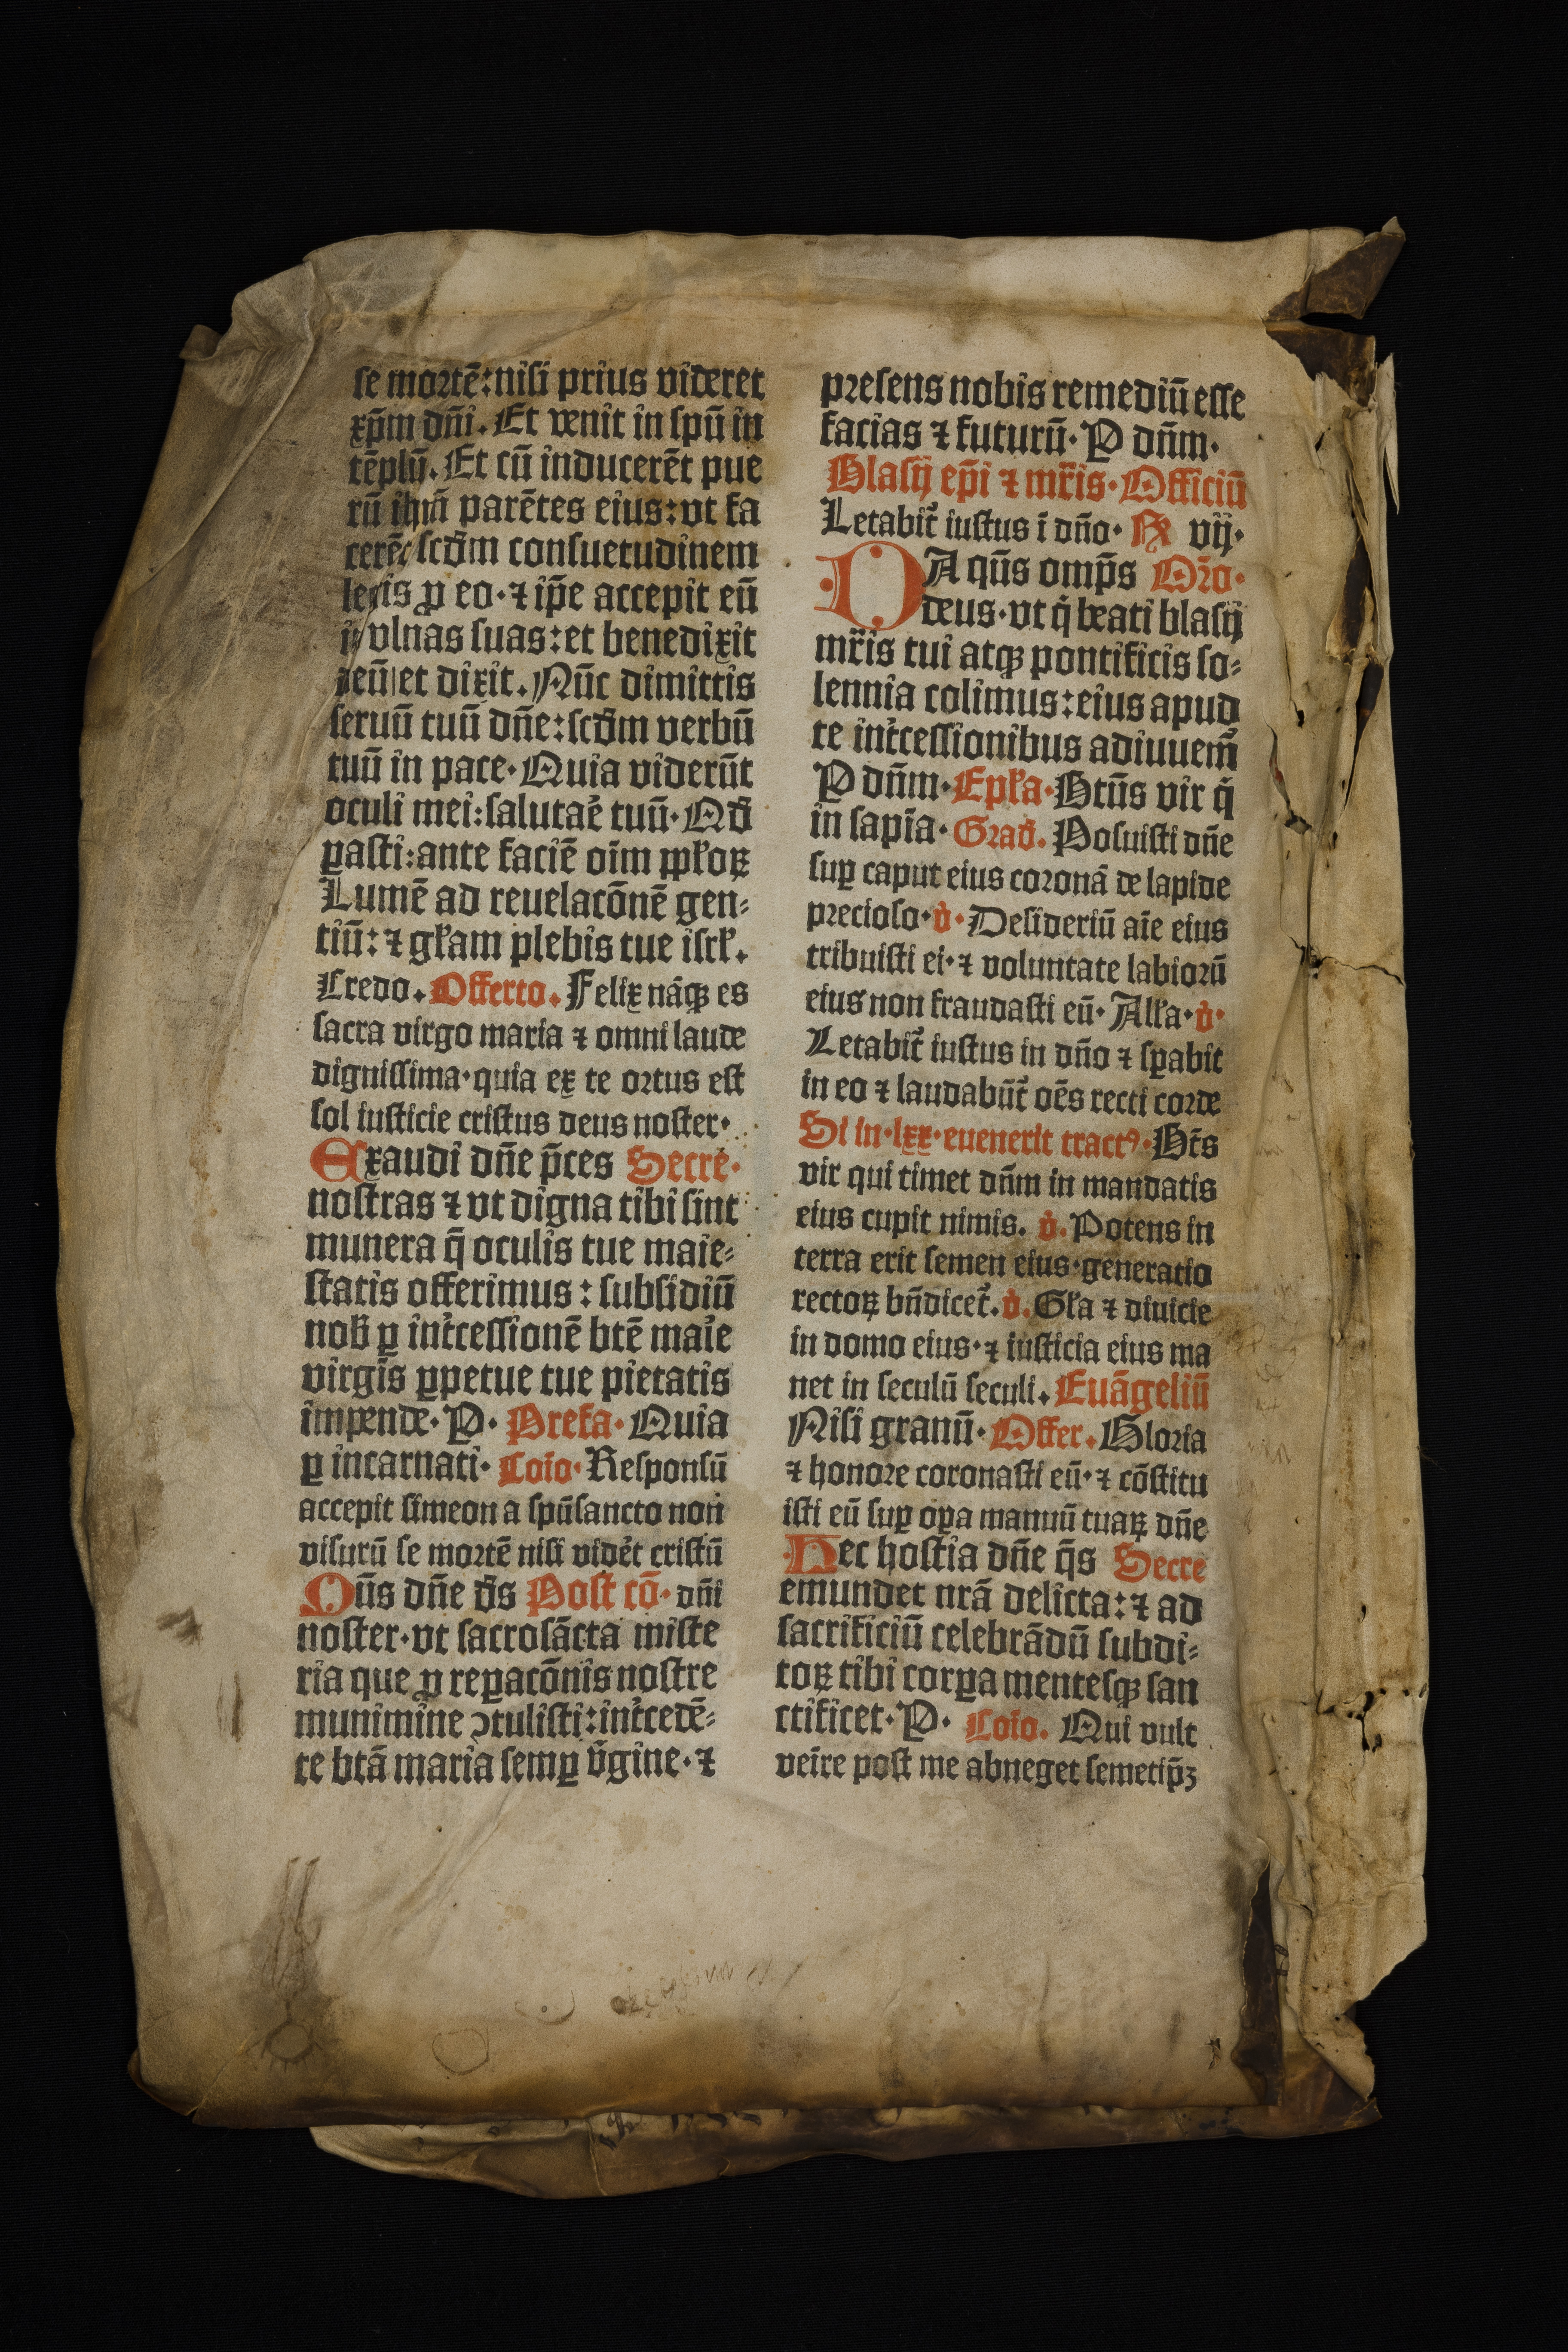 se mortē: nisi prius videret
xp̄m dn̄i. Et venit in spū in
tēplū. Et cū inducerēt pue
rū ihm̄ parētes eius: vt fa
cerēt scd̄m consuetudinem
legis ꝓ eo· ⁊ ip̄e accepit eū
ī vlnas suas: et benedixit
deū et dixit. Nūc dimittis
seruū tuū dn̄e: scd̄m verbū
tuū in pace· Quia viderūt
oculi mei: salutaē tuū· Qd̄
ꝑasti: ante faciē oīm ppl̄oꝝ
Lumē ad reuelacōnē gen⸗
tiū: ⁊ gl̄am plebis tue isrl̄.
Credo. Offerto. Felix nāqꝫ es
sacra virgo maria ⁊ omni laude
dignissima· quia ex te ortus est
sol iusticie cristus deus noster·
Exaudi dn̄e p̄ces Secre·
nostras ⁊ vt digna tibi sint
munera q̄ oculis tue maie⸗
statis offerimus: subsidiū
nob̄ ꝑ int̄cessionē btē maīe
virgīs ꝑpetue tue pietatis
impende· P· Prefa· Quia
ꝑ incarnati· Coīo· Responsū
accepit simeon a spūsancto non
visurū se mortē nisi vidēt cristū
Qūs dn̄e d̄s Post cō· dn̄i
noster· vt sacrosācta miste
ria que ꝓ reꝑacōnis nostre
munimine ꝯtulisti: int̄cedē⸗
te btā maria semꝑ v̄gine· ⁊
presens nobis remediū esse
facias ⁊ futurū· P dn̄m·
Blasij ep̄i ⁊ mr̄is· Officiū
Letabit̄ iustus ī dn̄o· Rx vij·
DA qūs omp̄s Or̄o·
deus· vt q̇ beati blasij
mr̄is tui atqꝫ pontificis so⸗
lennia colimus: eius apud
te int̄cessionibus adiuuem̄
P dn̄m· Epl̄a· Btūs vir q̇
in sapīa· Grad̄. Posuisti dn̄e
suꝑ caput eius coronā de lapide
precioso· v̇· Desideriū aīe eius
tribuisti ei· ⁊ voluntate labiorū
eius non fraudasti eū· All̄a· v̇·
Letabit̄ iustus in dn̄o ⁊ sꝑabit
in eo ⁊ laudabūt̄ oēs recti corde
Si in· lxx· euenerit tractꝰ· Bt̄s
vir qui timet dn̄m in mandatis
eius cupit nimis. v̇. Potens in
terra erit semen eius· generatio
rectoꝝ bn̄dicet̄. v̇. Gl̄a ⁊ diuicie
in domo eius· ⁊ iusticia eius ma
net in seculū seculi. Euāgeliū
Nisi granū· Offer. Gloria
⁊ honore coronasti eū· ⁊ cōstitu
isti eū suꝑ oꝑa manuū tuaꝝ dn̄e
Hec hostia dn̄e q̄s Secre
emundet nrā delicta: ⁊ ad
sacrificiū celebrādū subdi⸗
toꝝ tibi corꝑa mentesqꝫ san
ctificet· P· Coīo. Qui vult
veīre post me abneget semetip̄ꝫ